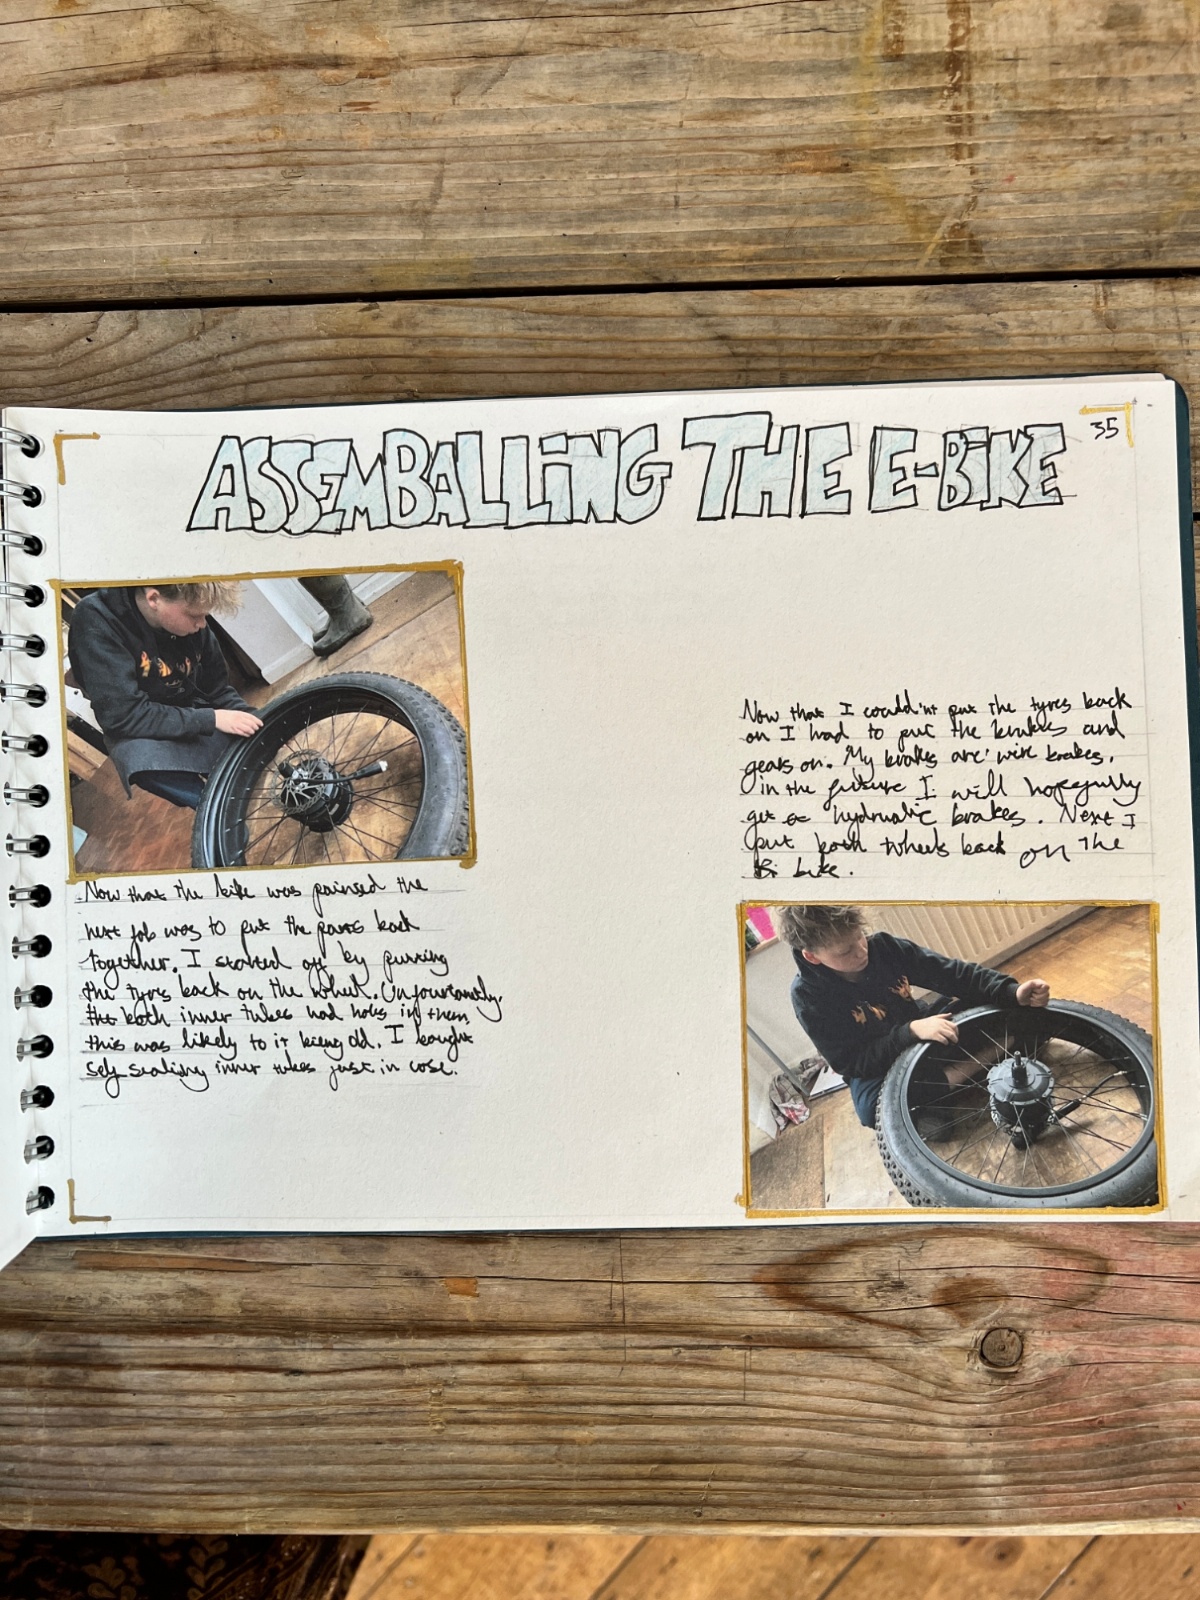 ASSEMBALLING THE E-BIKE
35
Now that the bike was painted the
next job was to put the parts back
together. I started off by putting
the tyres back on the wheel. Unfourtantly,
the both inner tubes had holes in them,
this was likely to it being old. I bought
self sealing inner tubes just in case.
Now that I could'nt put the tyres back
on I had to put the brakes and
gears on. My brakes are wire brakes,
in the future I will hopefully
get hydrualic brakes. Next I
put both wheels back on the
bike.